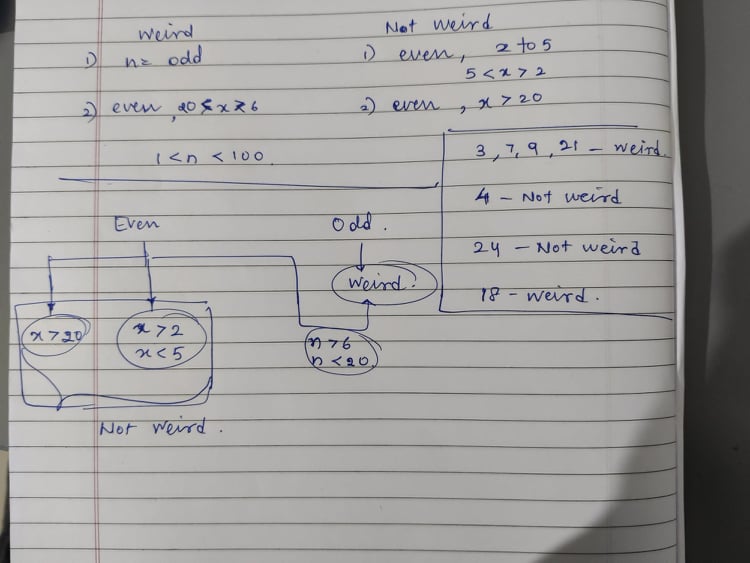 Weird
1) n= odd
2) even, 20 ≤ x ≥ 6
Not Weird
1) even, 2 to 5
5 < x > 2
2) even, x > 20
1 < n < 100
3, 7, 9, 21 - weird.
4 - Not weird
24 - Not weird
18 - weird.
Even
Odd.
Weird.
x > 20
x > 2
x < 5
n > 6
n < 20
Not weird.